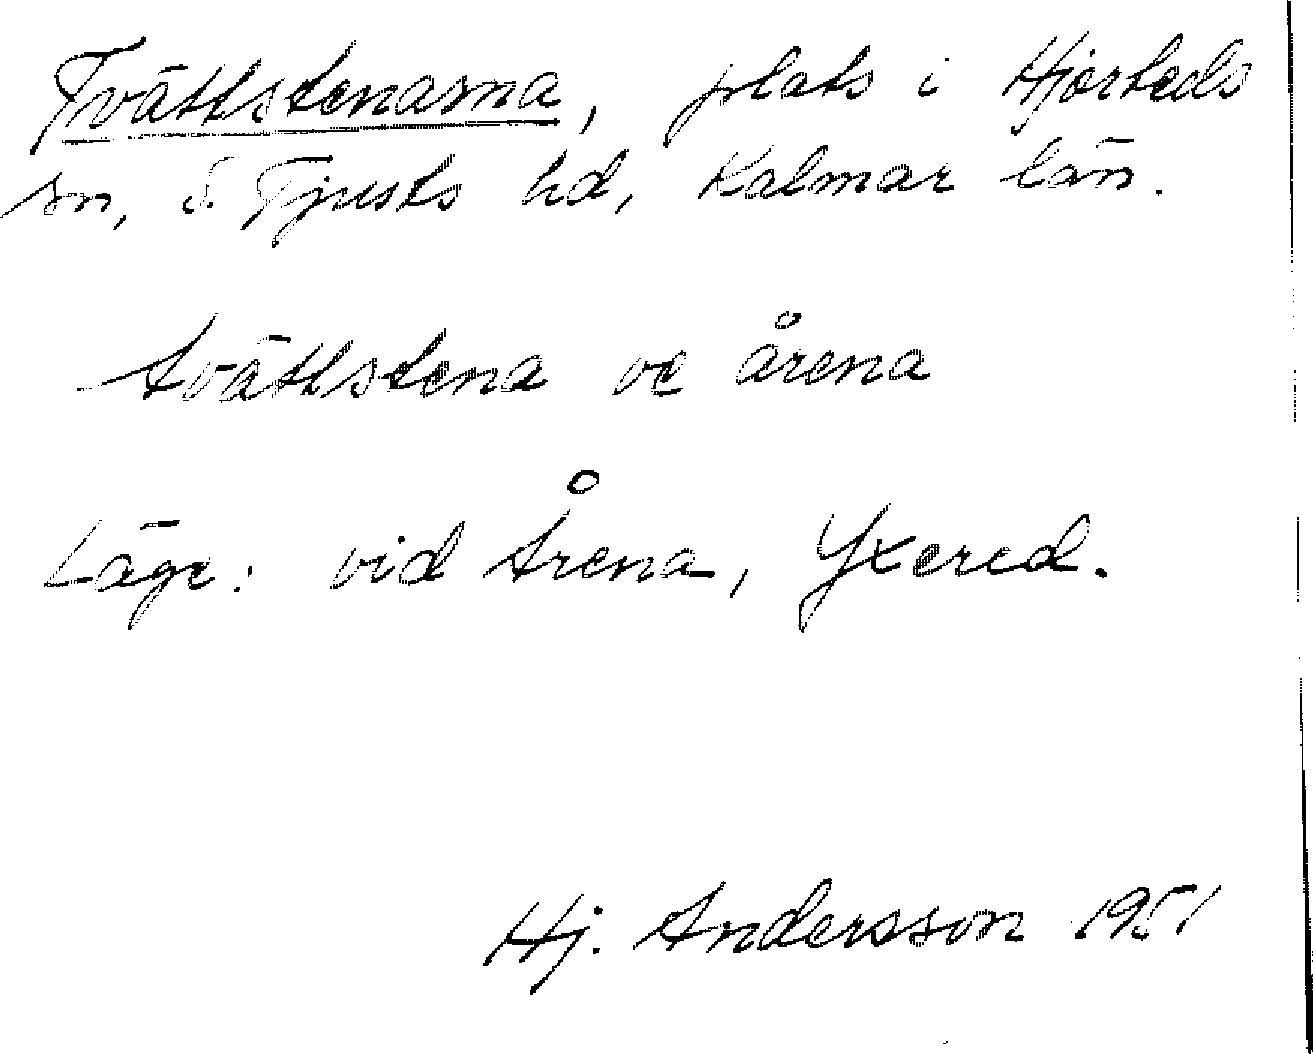 Tvättstenarna, plats i Hjorteds
sn, S. Tjusts hd, Kalmar län.
tvättstena ve årena
Läge: vid Årena, Yxered.
Hj. Andersson 1951